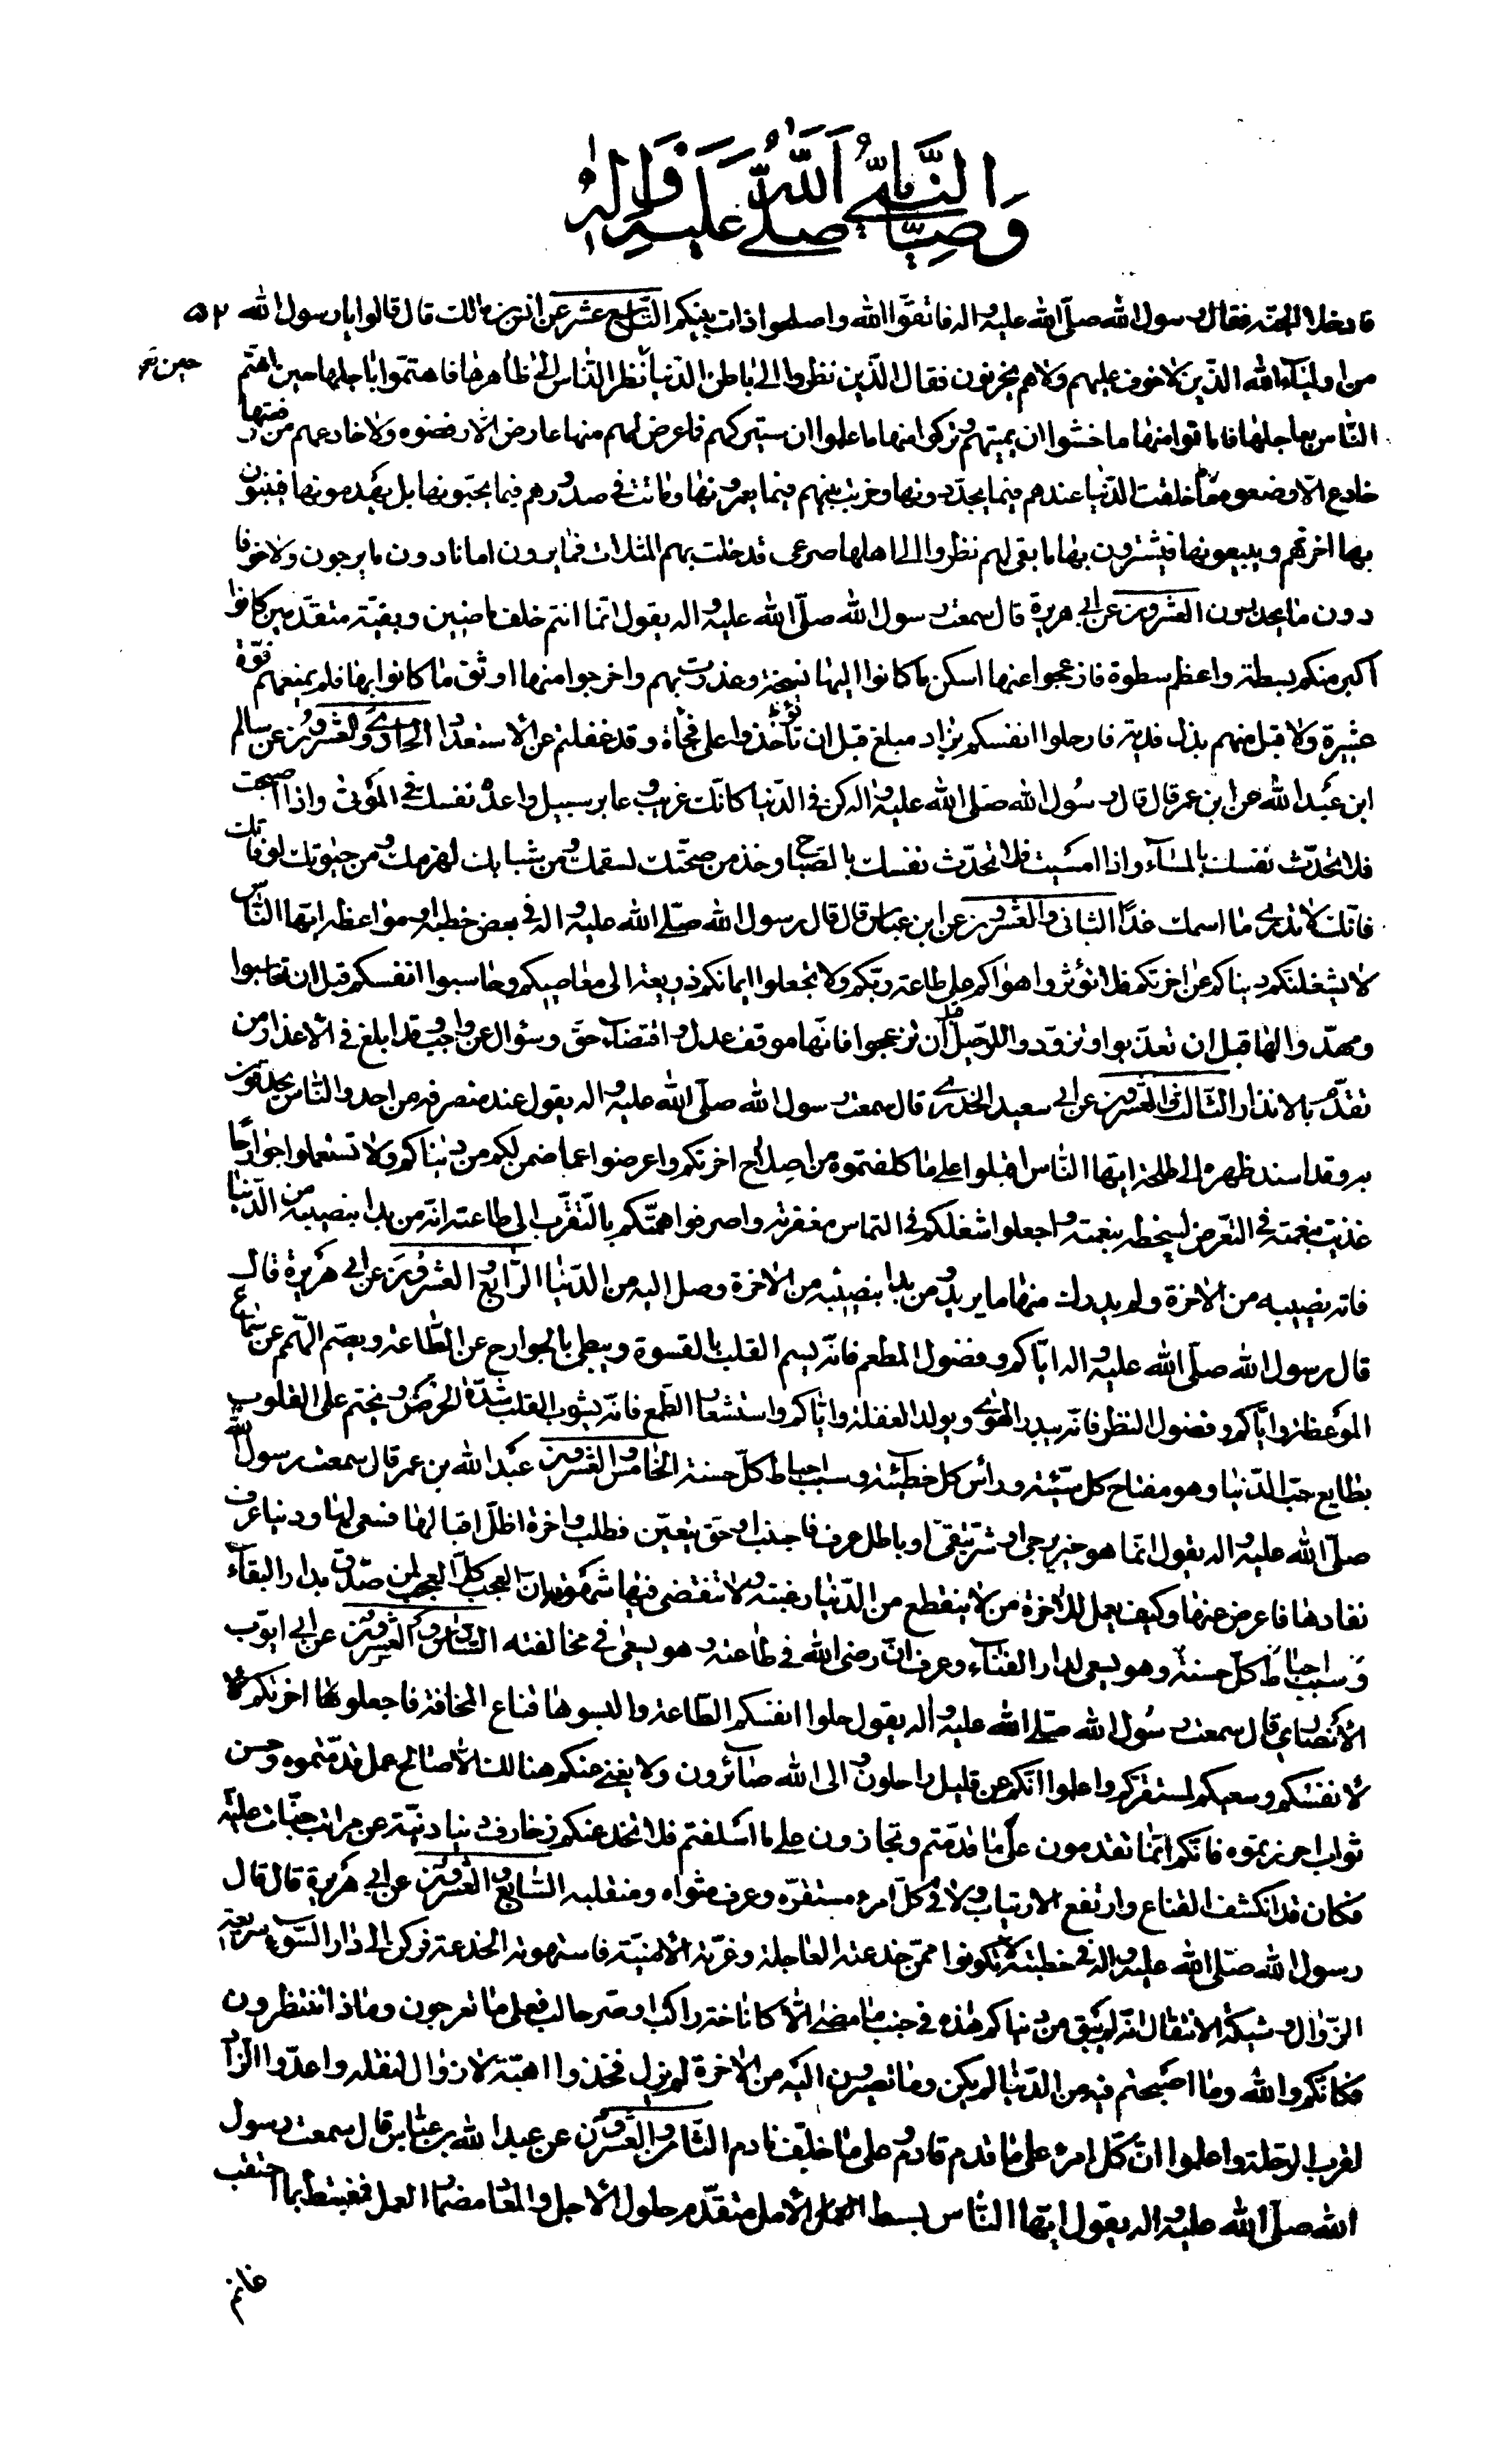 وَصِيَّا النَّبِيِّ صَلَّى اللَّهُ عَلَيْهِ وَآلِهِ
٥٢
فادخلا الجنة فقال رسول الله صلّى الله عليه واله فاتقوا الله واصلحوا ذات بينكم التاسع عشر عن انس بن مالك قال قالوا يا رسول الله
من اولياء الله الذين لا خوف عليهم ولا هم يحزنون فقال الذين نظروا الى باطن الدنيا نظر الناس الى ظاهرها فاهتموا باجلها حين اهتم
الناس بعاجلها فاماتوا منها ما خشوا ان يميتهم وتركوا منها ما علموا ان سيتركهم فما عرض لهم منها عارض الا رفضوه ولا خادعهم من رفعتها
خادع الا وضعوه خلقت الدنيا عندهم فيما يجددونها وخربت بينهم فيما يعمرونها وماتت في صدورهم فيما يحبونها بل يهدمونها فيبنون
بها اخرتهم ويبيعونها فيشترون بها ما يبقى لهم نظروا الى اهلها صرعى قد حلت بهم المثلات فما يرون امانا دون ما يرجون ولا خوفا
دون ما يحذرون العشرون عن ابي هريرة قال سمعت رسول الله صلّى الله عليه واله يقول انما انتم خلف ماضين وبقية متقدمين كانوا
اكبر منكم بسطة واعظم سطوة فازعجوا عنها اسكن ما كانوا اليها وغدرت بهم واخرجوا منها اوثق ما كانوا بها فلم يمنعهم قوة
عشيرة ولا قبل منهم بذل فدية فارحلوا انفسكم بزاد مبلغ قبل ان تؤخذوا على فجأة وقد غفلتم عن الاستعداد الحادي والعشرون عن سالم
ابن عبد الله عن ابن عمر قال قال رسول الله صلّى الله عليه واله كن في الدنيا كانك غريب وعابر سبيل واعدد نفسك في الموتى واذا اصبحت
فلا تحدث نفسك بالمساء واذا امسيت فلا تحدث نفسك بالصباح وخذ من صحتك لسقمك ومن شبابك لهرمك ومن حيوتك لوفاتك
فانك لا تدري ما اسمك غدا الثاني والعشرون عن ابن عباس قال قال رسول الله صلّى الله عليه واله في بعض خطبه او مواعظه ايها الناس
لا يشغلنكم دنياكم عن اخرتكم فلا تؤثروا اهواكم على طاعة ربكم ولا تجعلوا ايمانكم ذريعة الى معاصيكم وحاسبوا انفسكم قبل ان تحاسبوا
ومهدوا لها قبل ان تعذبوا وتزودوا للرحيل قبل ان تزعجوا فانها موقف عدل واقتضاء حق وسؤال عن واجب وقد ابلغ في الاعذار من
تقدم بالانذار الثالث والعشرون عن ابي سعيد الخدري قال سمعت رسول الله صلّى الله عليه واله يقول عند منصرفه من احد والناس يحدقون
به وقد اسند ظهره الى طلحة ايها الناس اقبلوا على ما كلفتموه من اصلاح اخرتكم واعرضوا عما ضمن لكم من دنياكم ولا تستعملوا جوارحا
غذيت بنعمته في التعرض لسخطه بنعمته واجعلوا شغلكم في التماس مغفرته واصرفوا همتكم بالتقرب الى طاعته انه من بدا بنصيبه من الدنيا
فاته نصيبه من الاخرة ولم يدرك منها ما يريد ومن بدا بنصيبه من الاخرة وصل اليه من الدنيا الرابع والعشرون عن ابي هريرة قال
قال رسول الله صلّى الله عليه واله اياكم وفضول المطعم فانه يسم القلب بالقسوة ويبطئ بالجوارح عن الطاعة ويصم الهمم عن سماع
الموعظة واياكم وفضول النظر فانه يبدر الهوى ويولد الغفلة واياكم واستشعار الطمع فانه يشوب القلب شدة الحرص ويختم على القلوب
بطابع حب الدنيا وهو مفتاح كل سيئة وراس كل خطيئة وسبب احباط كل حسنة الخامس والعشرون عبد الله بن عمر قال سمعت رسول الله
صلّى الله عليه واله يقول انما هو خير يرجى او شر يتقى او باطل عرف فاجتنب او حق يتعين فطلب واخرة اظل اقبالها فسعى لها ودنيا عرف
نفادها فاعرض عنها وكيف يعمل للاخرة من لا ينقطع من الدنيا رغبته ولا تنقضي فيها شهوته ان العجب كل العجب لمن صدق بدار البقاء
وسبب احباط كل حسنة وهو يسعى لدار الفناء وعرف ان رضى الله في طاعته وهو يسعى في مخالفته السادس والعشرون عن ابي ايوب
الانصاري قال سمعت رسول الله صلّى الله عليه واله يقول حلوا انفسكم الطاعة والبسوها قناع المخافة فاجعلوا اخرتكم
لانفسكم وسعيكم لمستقركم واعلموا انكم عن قليل راحلون والى الله صائرون ولا يغني عنكم هنالك الا صالح عمل قدمتموه وحسن
ثواب احرزتموه فانكم انما تقدمون على ما قدمتم وتجازون على ما اسلفتم فلا تخدعنكم زخارف دنيا دنية عن مراتب جنات علية
فكان قد انكشف القناع وارتفع الارتياب ولاقى كل امرء مستقره وعرف مثواه ومنقلبه السابع والعشرون عن ابي هريرة قال قال
رسول الله صلّى الله عليه واله في خطبته لا تكونوا ممن خدعته العاجلة وغرته الامنية فاستهوته الخدعة فركن الى دار السوء سريعة
الزوال وشيكة الانتقال انه لم يبق من دنياكم هذه في جنب ما مضى الا كاناخة راكب او صر حالب فعلى ما تعرجون وماذا تنتظرون
فكانكم والله وما اصبحتم فيه من الدنيا لم يكن وما تصيرون اليه من الاخرة لم يزل فخذوا اهبة لازوال لنقله واعدوا الزاد
لقرب الرحلة واعلموا ان كل امرء على ما قدم قادم وعلى ما خلف نادم الثامن والعشرون عن عبد الله بن عباس قال سمعت رسول
الله صلّى الله عليه واله يقول ايها الناس بسط الامل متقدم حلول الاجل والمعاد مضمار العمل فمغتبط بما احتقب
غانم